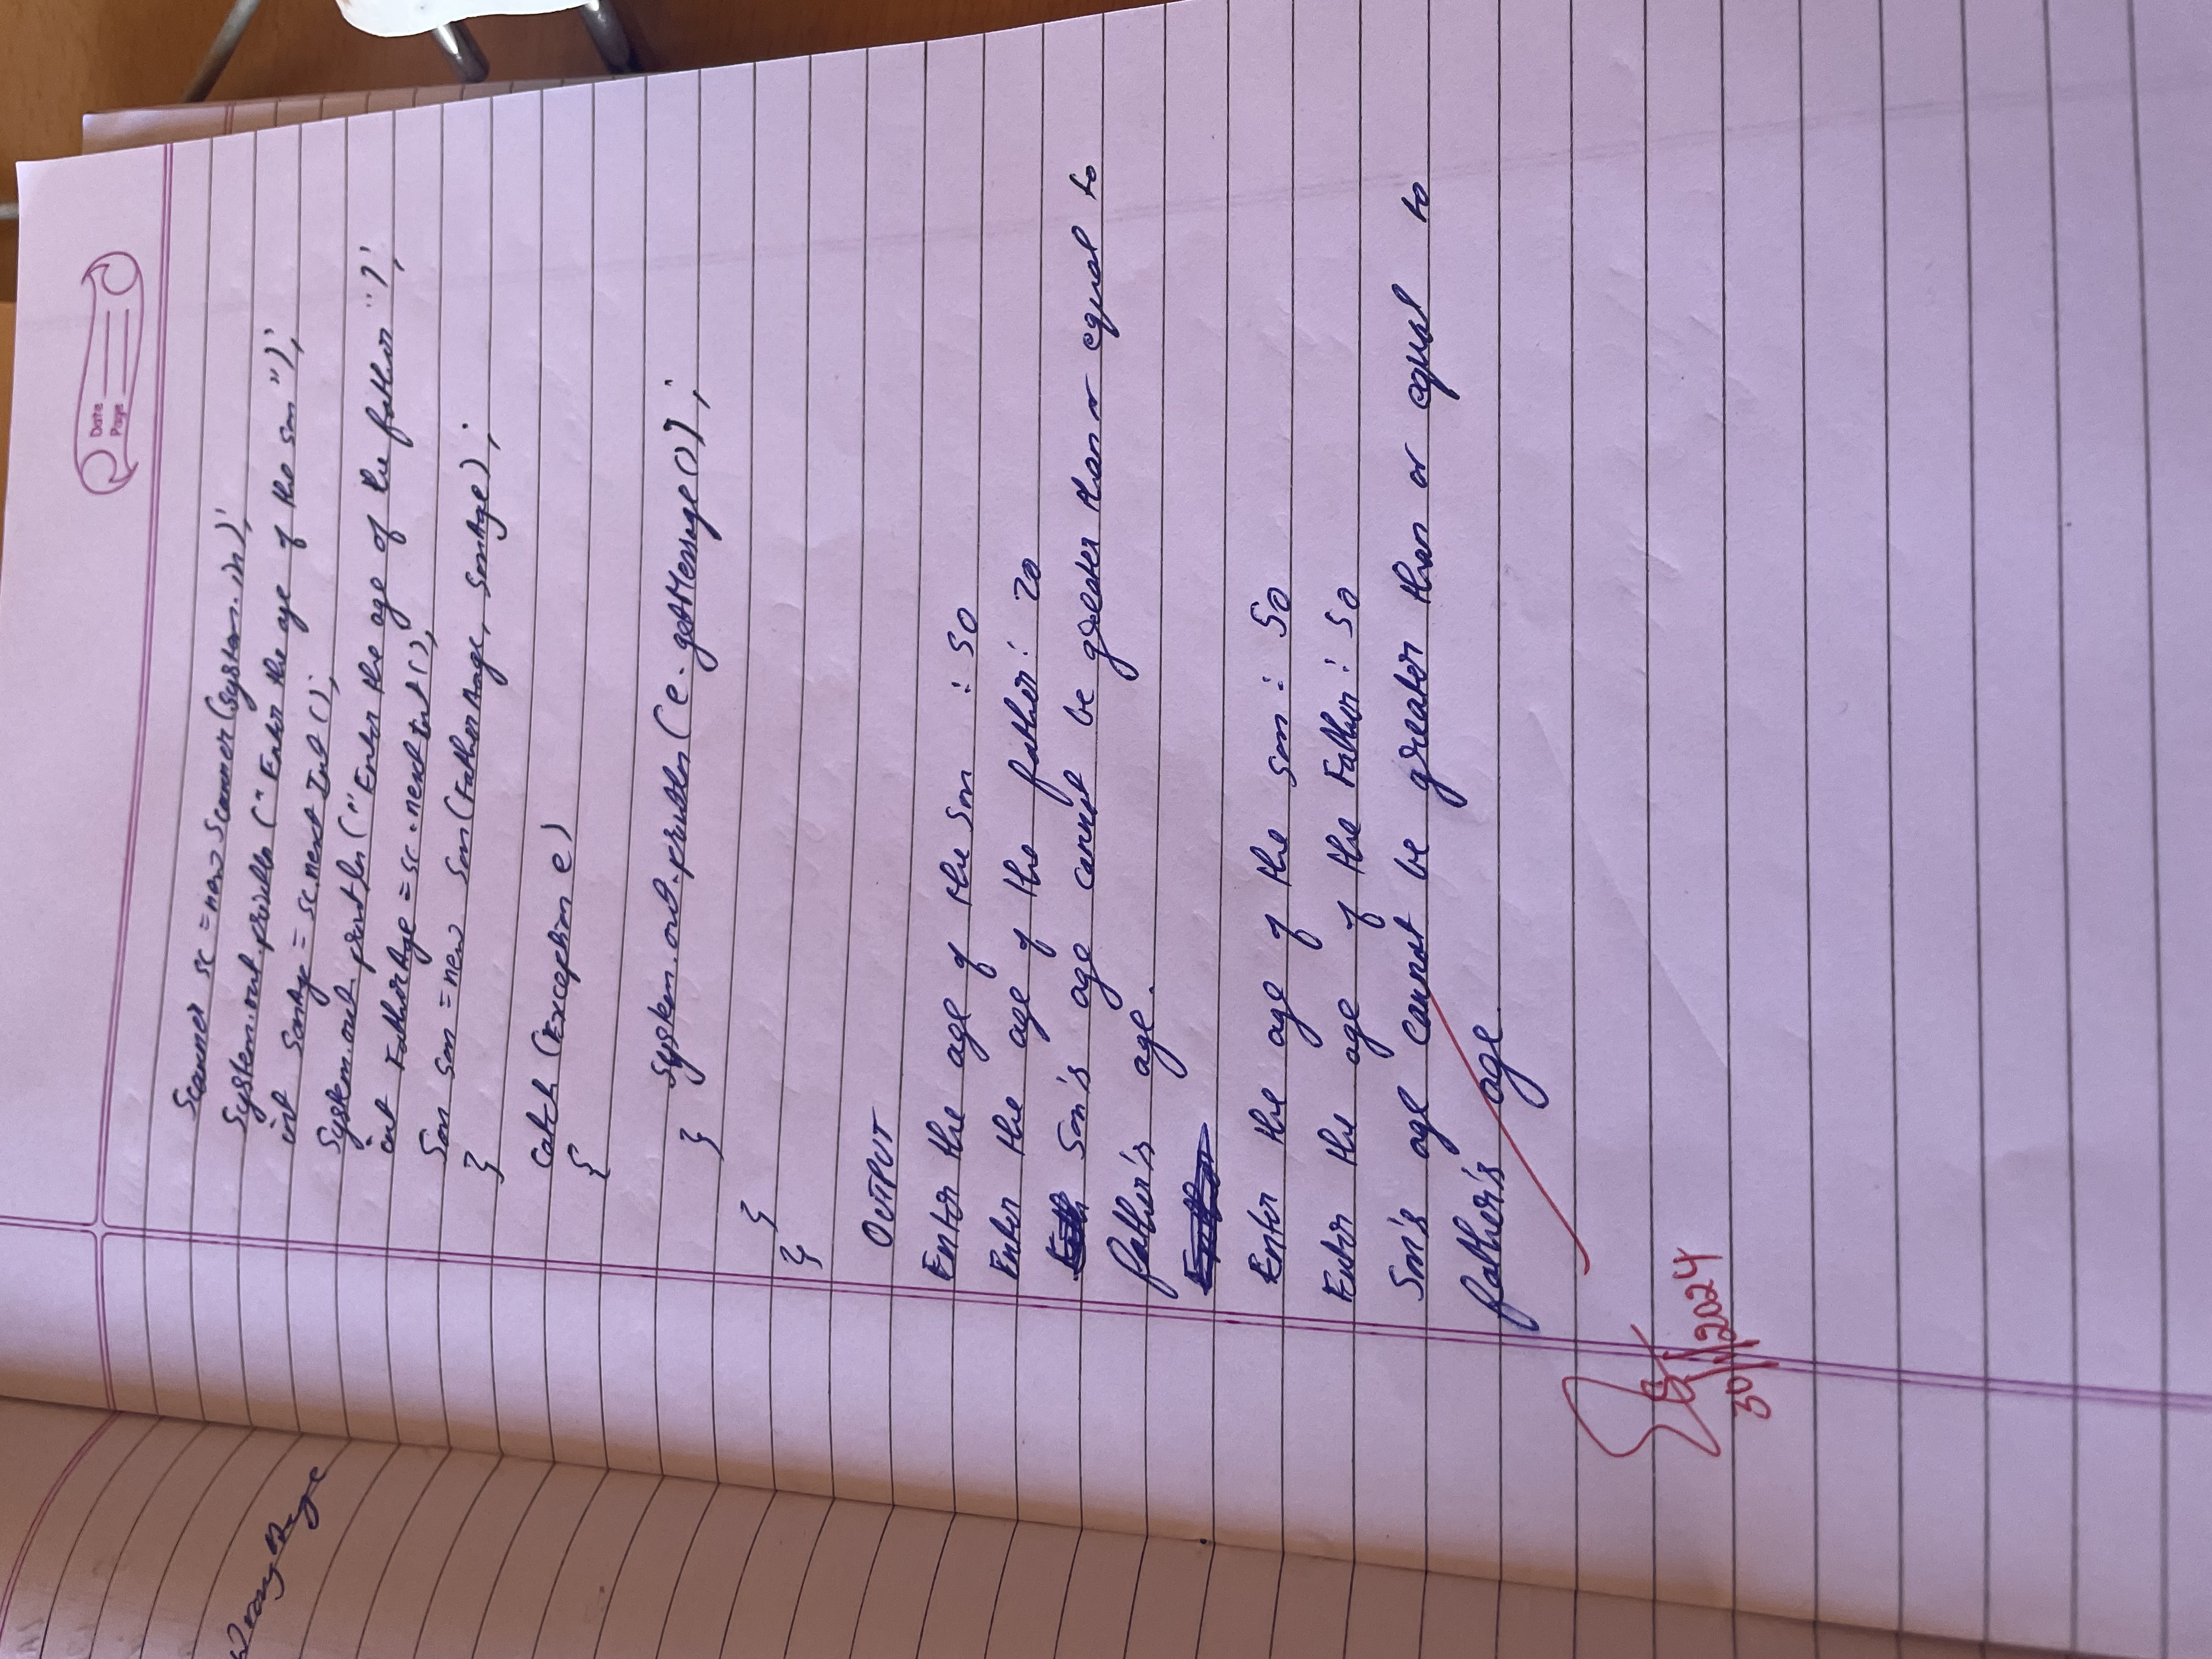 WrongAge
Date
Page
Scanner sc = new Scanner(System.in);
System.out.println("Enter the age of the son");
int SonAge = sc.nextInt();
System.out.println("Enter the age of the father");
int FatherAge = sc.nextInt();
Son son = new Son(FatherAage, SonAge);
}
catch (Exception e)
{
System.out.println(e.getMessage());
}
}
}
OUTPUT
Enter the age of the Son : 50
Enter the age of the father: 20
Son's age cannot be greater than or equal to
father's age.
Enter the age of the son: 50
Enter the age of the Father: 50
Son's age cannot be greater than or equal to
father's age.
30/1/2024